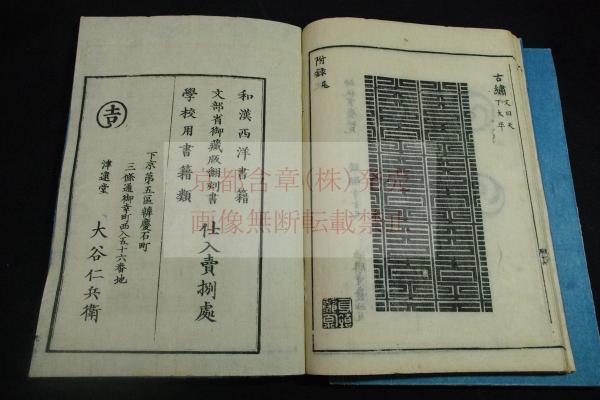 附錄尾
古繡 文曰天
下太平
和漢西洋書籍
文部省御藏版飜刻書
學校用書籍類
仕入賣捌處
下京第五區辨慶石町
三條通御幸町西入五十六番地
津逮堂
大谷仁兵衛
吉
京都含章(株)発売
画像無断転載禁止